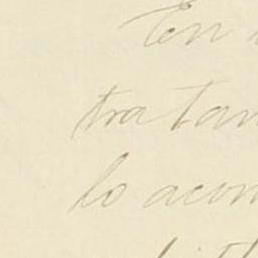 En
tratan
lo acom